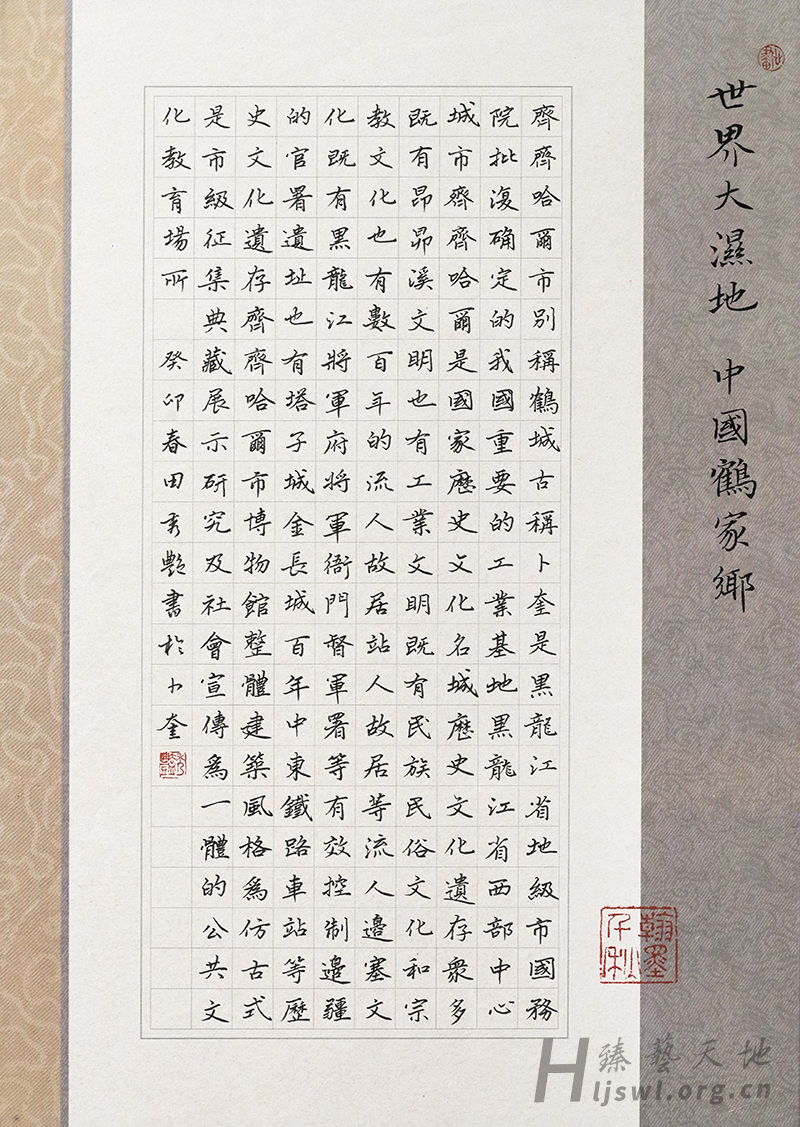 世界大濕地 中國鶴家鄉
齊齊哈爾市別稱鶴城古稱卜奎是黑龍江省地級市國務
院批復确定的我國重要的工業基地黑龍江省西部中心
城市齊齊哈爾是國家歷史文化名城歷史文化遺存衆多
既有昂昂溪文明也有工業文明既有民族民俗文化和宗
教文化也有數百年的流人故居站人故居等流人邊塞文
化既有黑龍江將軍府將軍衙門督軍署等有效控制邊疆
的官署遺址也有塔子城金長城百年中東鐵路車站等歷
史文化遺存齊齊哈爾市博物館整體建築風格爲仿古式
是市級征集典藏展示研究及社會宣傳爲一體的公共文
化教育場所 癸卯春田秀艷書於卜奎
翰墨千秋
臻藝天地
Hljswl.org.cn